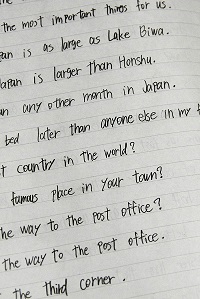 the most important things for us.
an is as large as Lake Biwa.
apan is larger than Honshu.
an any other month in Japan.
bed later than anyone else in my f
t country in the world?
famous place in your town?
he way to the post office?
the way to the post office.
the third corner.